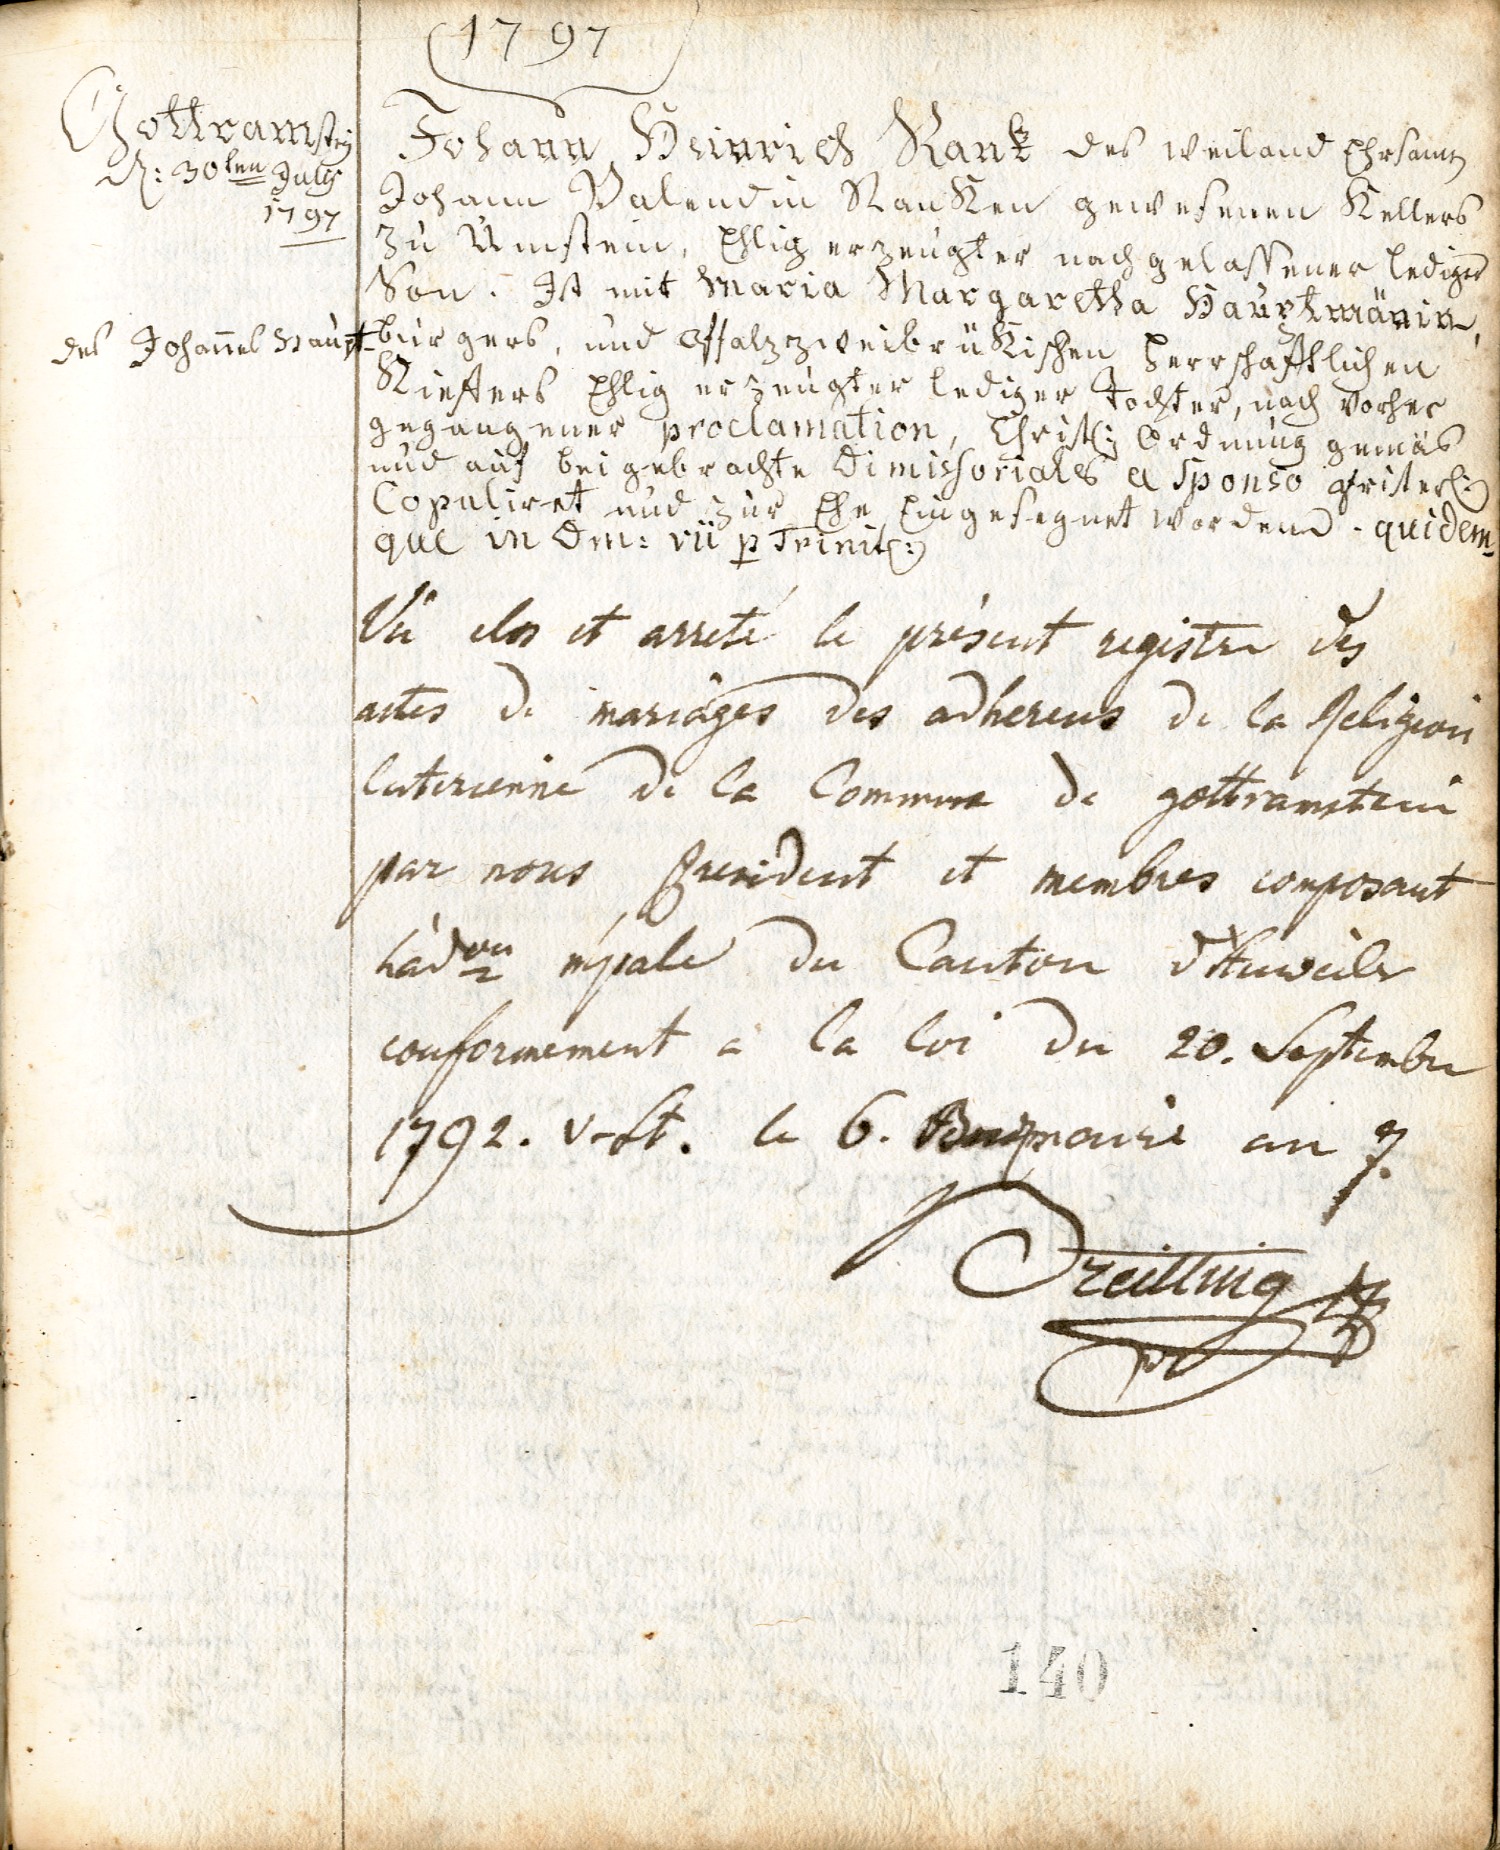 1797
Gottramstein
d: 30ten July
1797
Johann Heinrich Rank des weiland Ehrsamen
Johann Valendin Ranken gewesenen Kellers
zu Umstein, Ehlig erzeugter nachgelassener lediger
Son. Ist mit Maria Margaretha Hauptmänin,
des Johanes Haupt
burgers, und Pfalzzweibrükischen Herrschafftlichen
Kiefers Ehlig erzeugter lediger Tochter, nach vorher
gegangener proclamation, Christl: Ordnung gemäs
und auf beigebrachte Dimissoriales a Sponso
Copuliret und zur Ehe Eingesegnet worden. quidem
que in Dm: VII p Trinit:
Vu clos et arreté le présent registre des
actes de mariages des adherens de la Religion
luterienne de la Commune de gottramstein
par nous président et membres composant
l'adon mpale du Canton d'Anweiler
conformement a la loi du 20. Septembre
1792. v-st. le 6. an 7.
pr
140